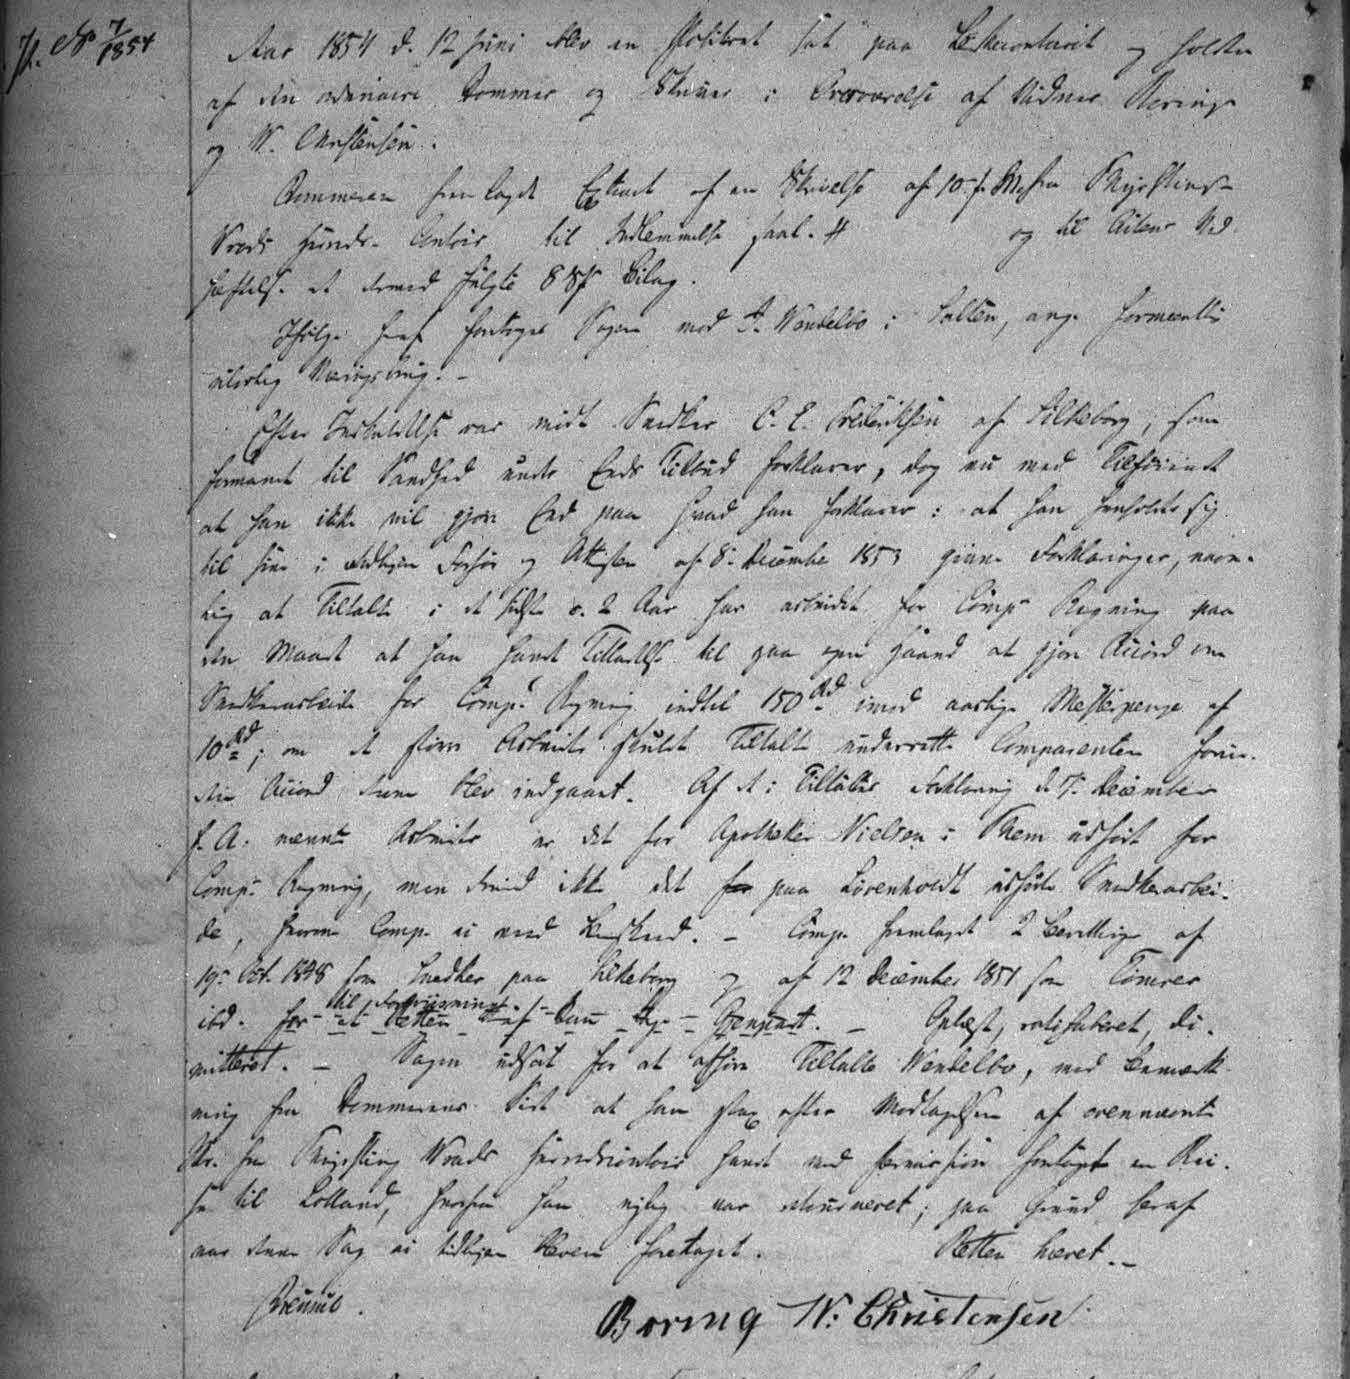 P. No 7/1854
Aar 1854 d. 12 Juni blev en Politiret sat paa Birkecontoiret og holden
af den ordinaire Dommer og Skriver i Overværelse af Vidner Boring
og N. Christensen.
Dommeren fremlagde Extract af en Skrivelse af 10. f. M. fra Thyrsting-
Vrads Herreds Contoir til Indlemmelse saal. # og til Actens Ved-
hæftelse et dermed fulgte 8 Bilag.
Ifølge heraf foretoges Sagen mod A. Wendelbo i Salten, ang. formeentlig
ulovlig Næringsbrug. -
Efter Indkaldelse var mødt Snedker C. E. Frederiksen af Silkeborg, som
formanet til Sandhed under Eeds Tilbud forklarer, dog nu med Tilføiende
at han ikke vil gjøre Eed paa hvad han forklarer: at han henholdte sig
til sine i tidligere Forhør og Attester af 8. December 1853 givne Forklaringer, nem-
lig at Tiltalte i de sidste c. 2 Aar har arbeidet for Comp. Regning paa
den Maade at han havde Tilladelse til paa egen Haand at gjøre Accord om
Snedkerarbeide for Comp. Regning indtil 150 Rd imod aarlige Mesterpenge af
10 Rd; om et større Arbeide skulde Tiltalte underrette Comparenten forin-
den Accord derom blev indgaaet. Af de i Tiltaltes Forklaring d. 7. December
f. A. nævnte Arbeider er det for Apotheker Nielsen i Them udført for
Comp. Regning, men derimod ikke det for paa Løvenholdt udførte Snedkerarbei-
de, hvorom Comp. ei veed Beskeed. - Comp. fremlagde 2 Bevillinger af
19. Oct. 1848 som Snedker paa Silkeborg og af 12 December 1851 som Tømrer
ibd. til Forevisning - Oplæst, ratihaberet, di-
mitteret. - Sagen udsat for at afhøre Tiltalte Wendelbo, med Bemærk-
ning fra Dommerens Side at han strax efter Modtagelsen af ovennævnte
Skr. fra Thyrsting Vrads Herredscontoir havde med Permission foretaget en Rei-
se til Lolland, hvorfra han nylig var retourneret; paa Grund heraf
var denne Sag ei tidligere bleven foretaget. Retten hævet. -
Boring N. Christensen